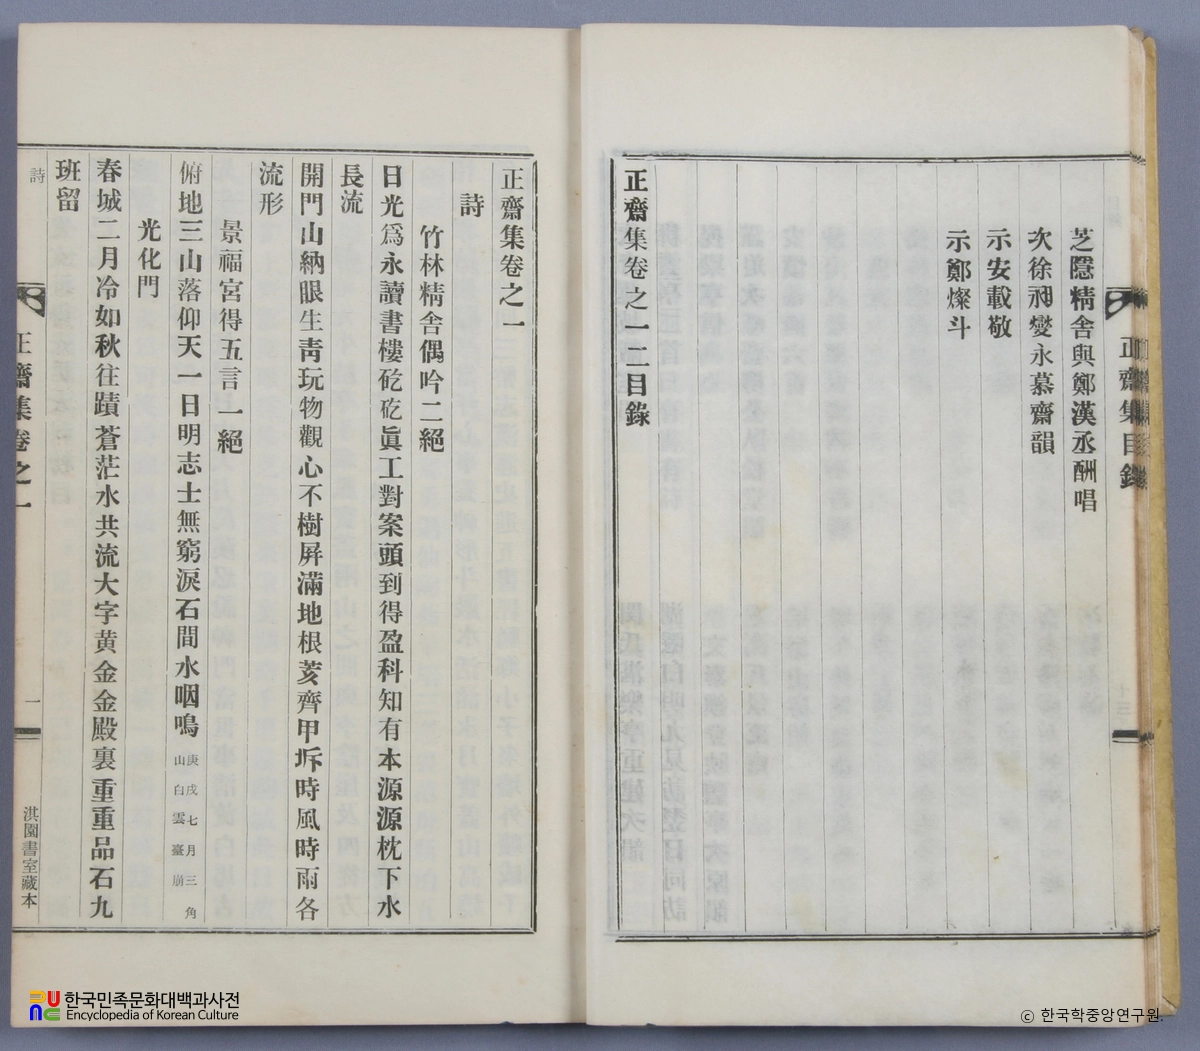 芝隱精舍與鄭漢丞酬唱
次徐昶燮永慕齋韻
示安載敬
示鄭燦斗
正齋集卷之一二目錄
正齋集目錄
十三
正齋集卷之一
詩
竹林精舍偶吟二絕
日光爲永讀書樓矻矻眞工對案頭到得盈科知有本源源枕下水
長流
開門山納眼生靑玩物觀心不樹屛滿地根荄齊甲坼時風時雨各
流形
景福宮得五言一絕
俯地三山落仰天一日明志士無窮淚石間水咽鳴
庚戌七月三角
山白雲臺崩
光化門
春城二月冷如秋往蹟蒼茫水共流大字黄金金殿裏重重品石九
班留
詩
正齋集卷之一
一
淇園書室藏本
한국민족문화대백과사전
Encyclopedia of Korean Culture
ⓒ 한국학중앙연구원.